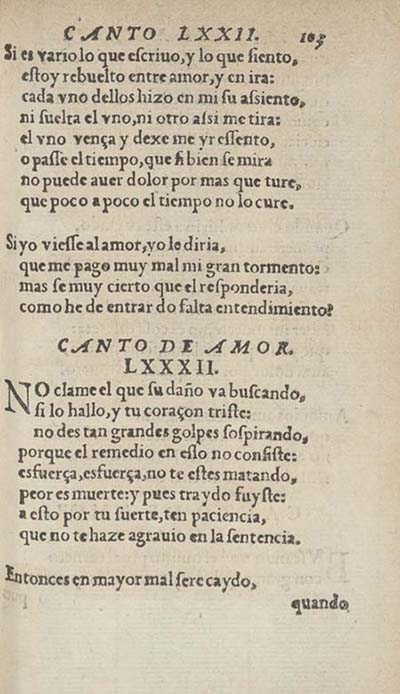 CANTO LXXII. 105
Si es vario lo que escriuo, y lo que siento,
estoy rebuelto entre amor, y en ira:
cada vno dellos hizo en mi su assiento,
ni suelta el vno, ni otro assi me tira:
el vno vença y dexe me yr essento,
o passe el tiempo, que si bien se mira
no puede auer dolor por mas que ture,
que poco a poco el tiempo no lo cure.
Si yo viesse al amor, yo le diria,
que me pago muy mal mi gran tormento:
mas se muy cierto que el responderia,
como he de entrar do falta entendimiento?
CANTO DE AMOR.
LXXXII.
NO clame el que su daño va buscando,
si lo hallo, y tu coraçon triste:
no des tan grandes golpes sospirando,
porque el remedio en esso no consiste:
esfuerça, esfuerça, no te estes matando,
peor es muerte: y pues traydo fuyste:
a esto por tu suerte, ten paciencia,
que no te haze agrauio en la sentencia.
Entonces en mayor mal sere caydo,
quando